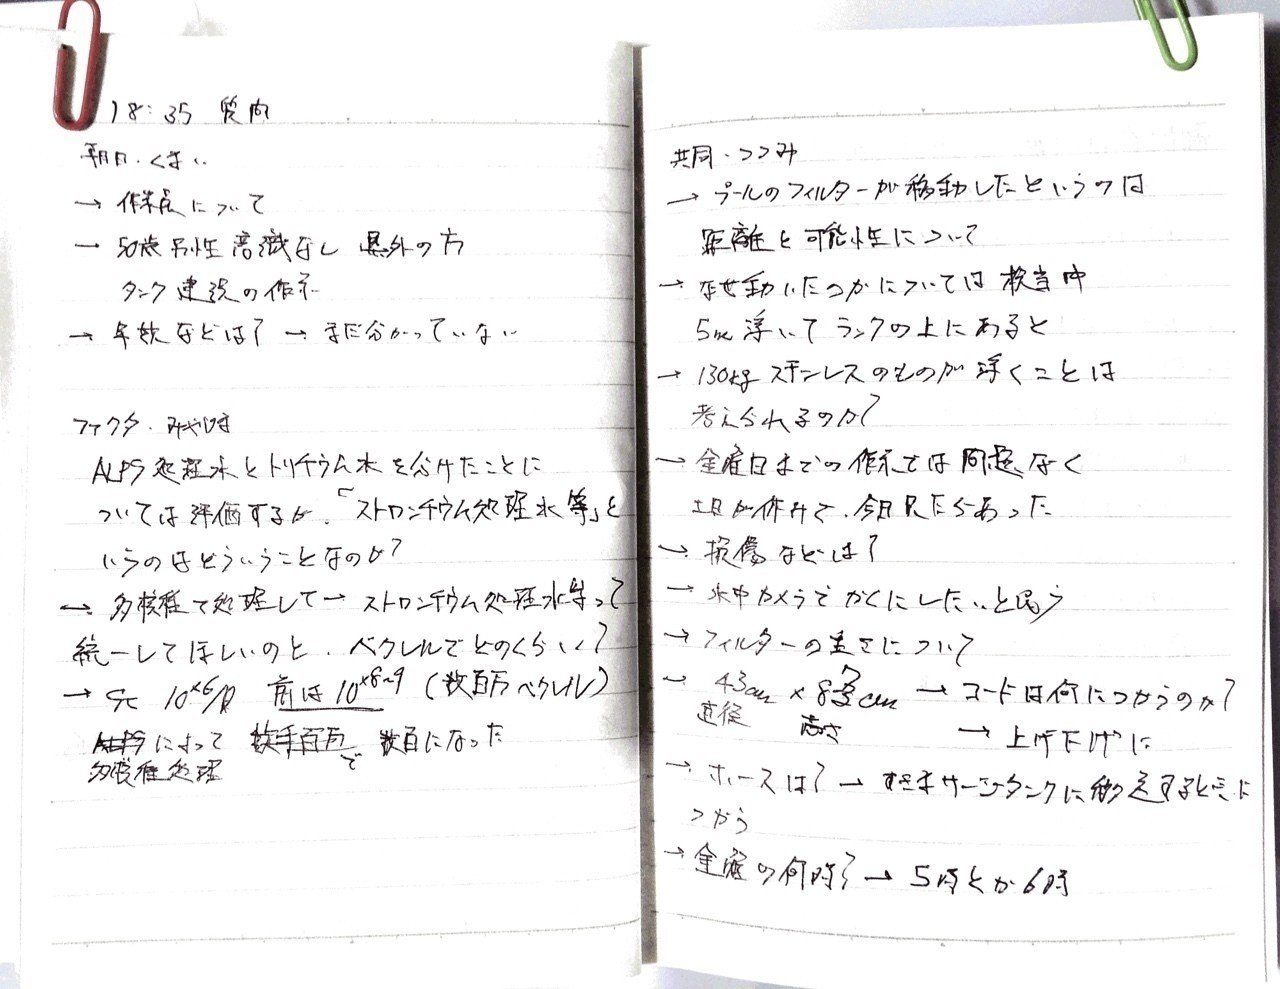 18:35 質問
朝日・くまい
→ 作業員について
→ 50歳男性 意識なし 県外の方
タンク建設の作業
→ 年数などは? → まだ分かっていない
ファクタ・みやじま
ALPS処理水とトリチウム水を分けたことに
ついては評価するが、「ストロンチウム処理水等」と
いうのはどういうことなのか?
→ 多核種で処理して→ストロンチウム処理水等って
統一してほしいのと、ベクレルでどのくらい?
→ 10×6/ℓ 前は10×8~9 (数百万ベクレル)
ALPSによって 数千百万で 数百になった
多核種処理
共同・つつみ
→ プールのフィルターが移動したというのは
距離と可能性について
→ なぜ動いたのかについては検当中
5m 浮いてラックの上にあると
→ 130kgステンレスのものが浮くことは
考えられるのか?
→ 金曜日までの作業では問題なく
土日が休みで、今日見たらあった
→ 損傷などは?
→ 水中カメラでかくにんしたいと思う
→ フィルターの重さについて
→ 43cm × 87cm → コードは何につかうのか?
直径 高さ → 上げ下げに
→ ホースは? → すきまサージタンクに移送するときに
つかう
→ 金曜の何時? → 5時とか6時